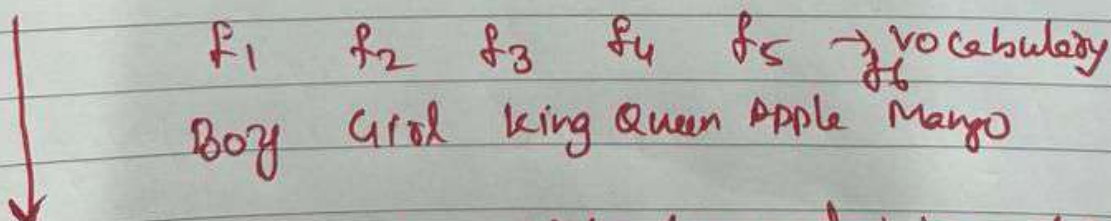 f1 f2 f3 f4 f5 → vocabulary
f6
Boy Girl King Queen Apple Mango